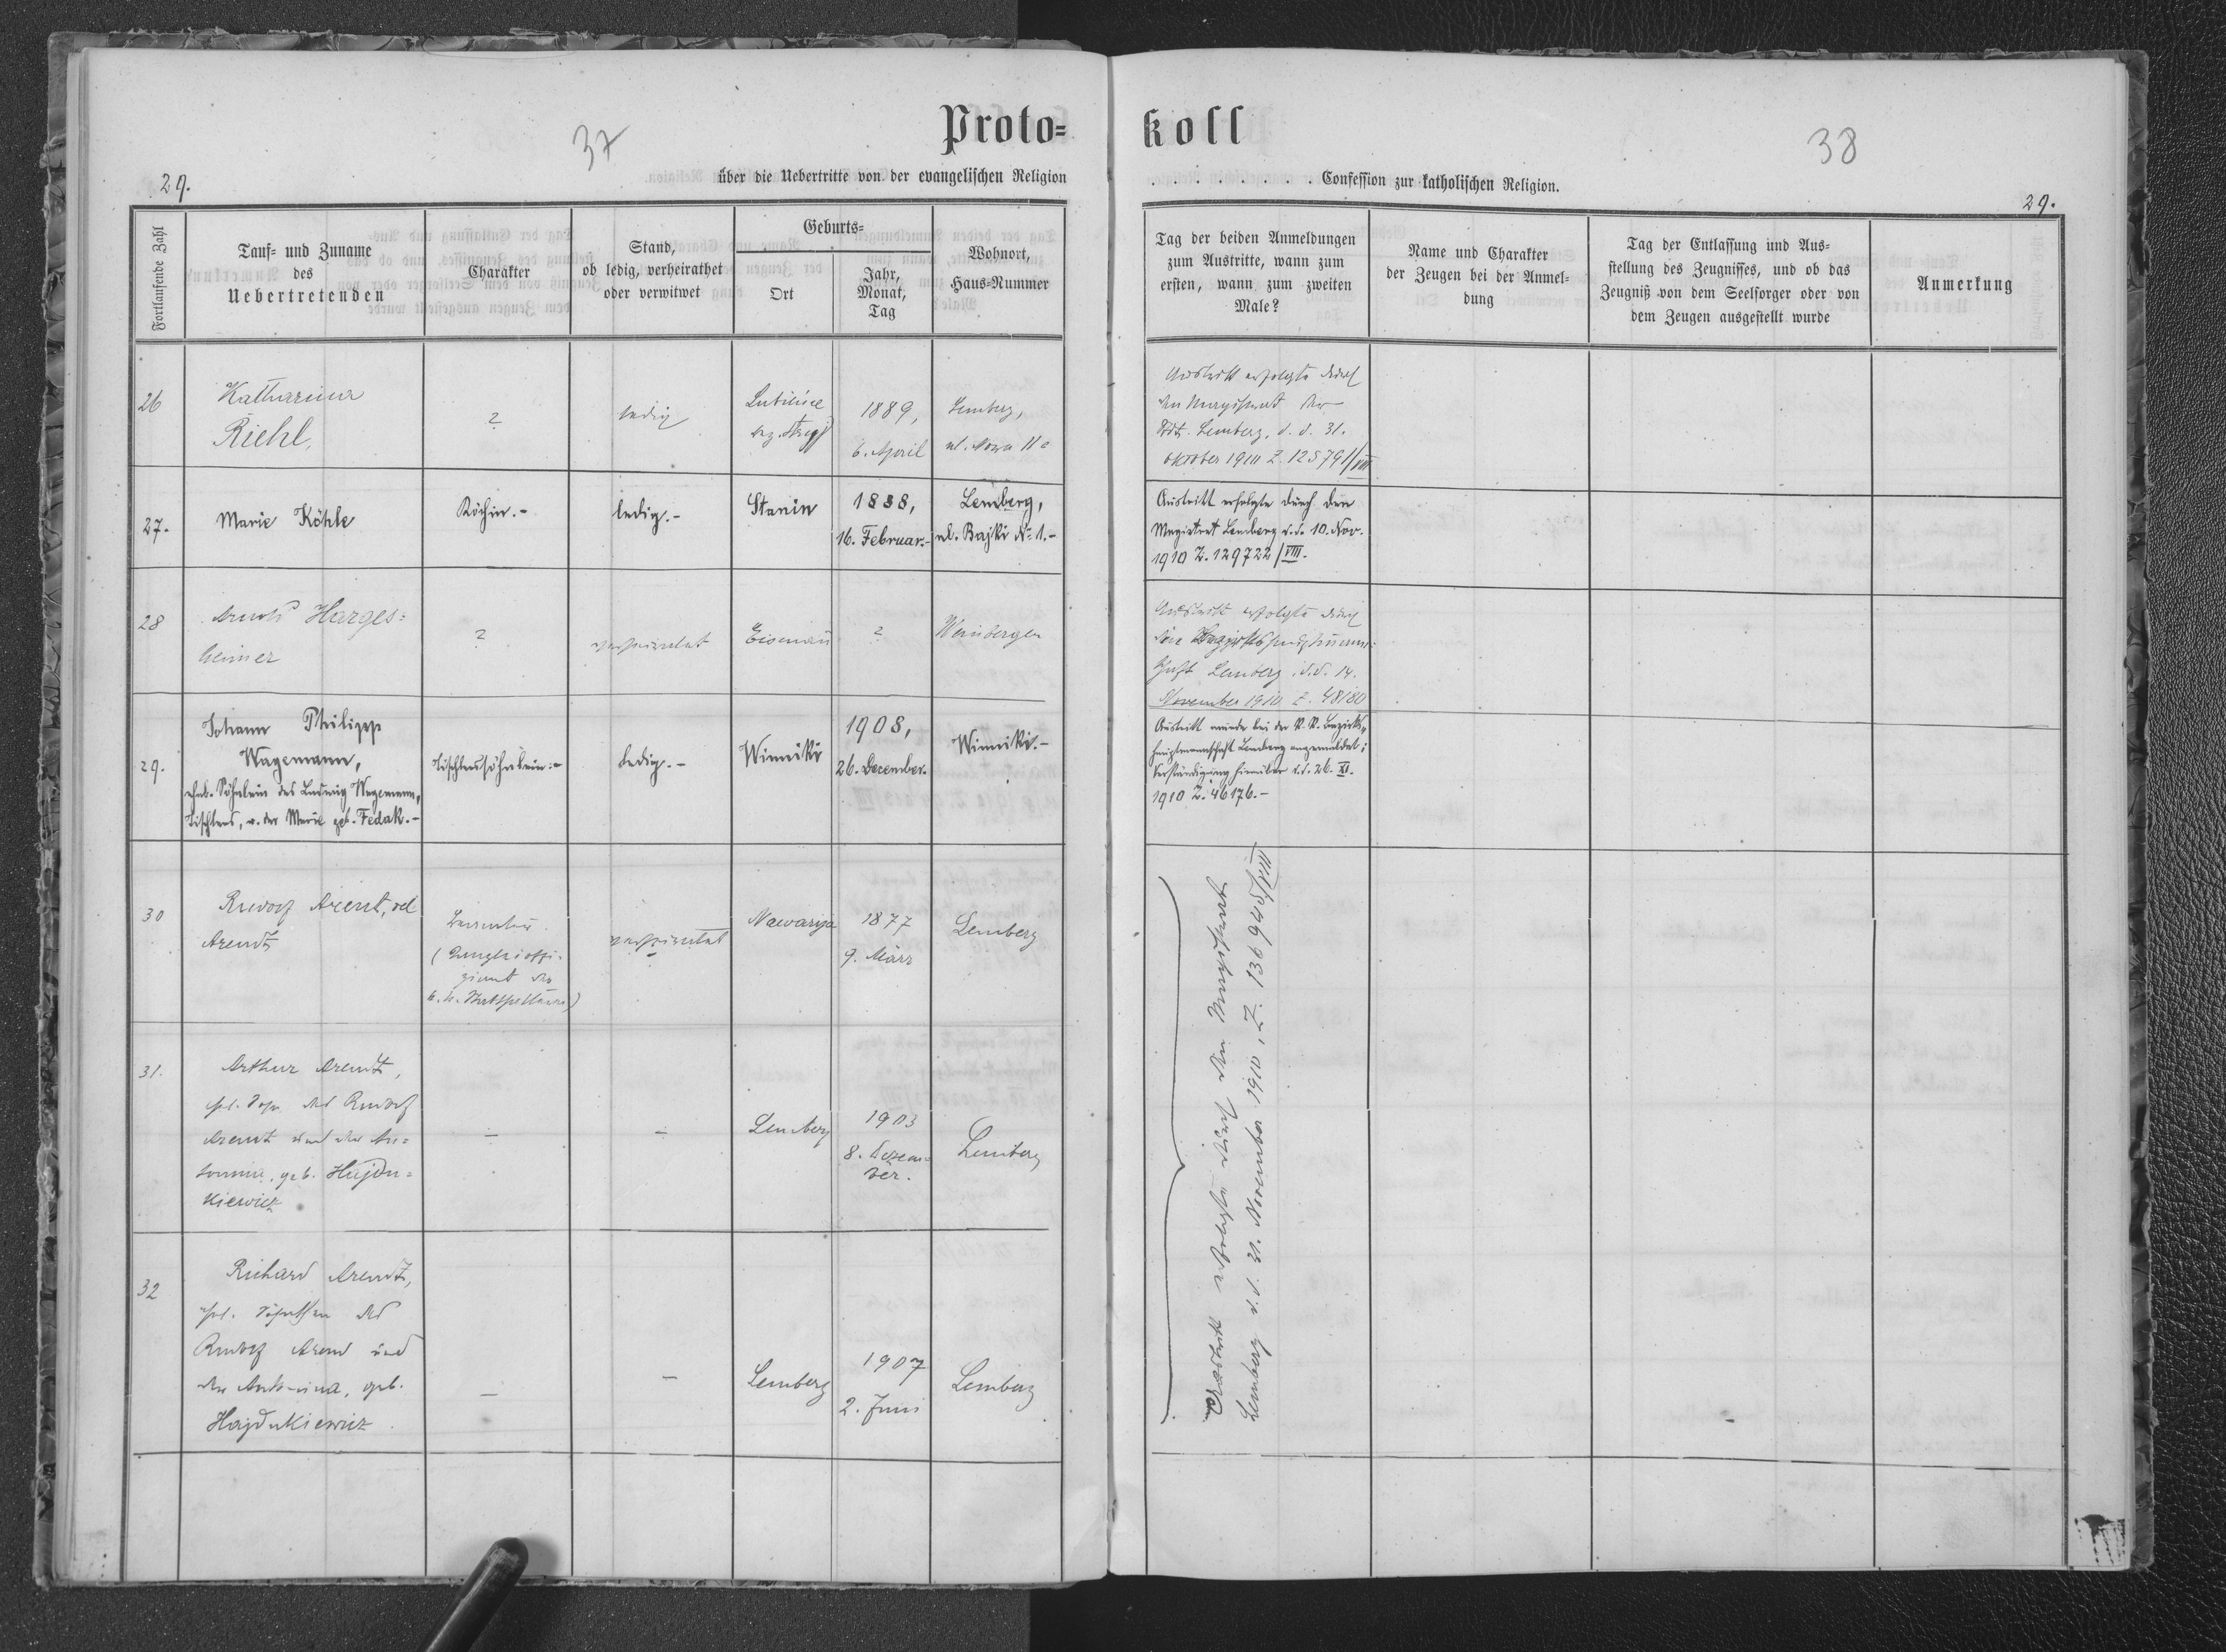 Proto=
37
über die Uebertritte von der evangelischen Religion
29.
Fortlaufende Zahl
Tauf- und Zuname
des
Uebertretenden
Charakter
Stand,
ob ledig, verheirathet
oder verwitwet
Geburts-
Ort
Jahr,
Monat,
Tag
Wohnort,
Haus-Nummer
26
Katharina
Riehl,
?
ledig
bez. Stryj
1889,
6. April
Lemberg,
ul. Nowa 11a
27.
Marie Köhle
Köchin.-
ledig.-
Stanin
1888,
16. Februar.-
Lemberg,
ul. Bajki № 1.-
28
Arnold Harges=
heimer
?
verheiratet
Eisenau
?
Weinbergen
29.
Johann Philipp
Wagemann,
ehel. Söhnlein des Ludwig Wagemann,
Tischlers, u. der Marie geb. Fedak.-
Tischlerssöhnlein.-
ledig.-
Winniki
1908,
26. December.
Winniki.-
30
Rudolf Arent, vel
Arendt
Beamter
(Kanzleioffi-
ziant der
k. k. Statthalterei)
verheiratet
Nawarya
1877
9. März
Lemberg
31.
Arthur Arendt,
ehl. Sohn des Rudolf
Arent und der An=
tonina, geb. Hajdu=
kiewicz
-
-
Lemberg
1903
8. Dezem=
ber.
Lemberg
32
Richard Arendt,
ehl. Söhnchen des
Rudolf Arend und
der Antonina, geb.
Hajdukiewicz.
-
-
Lemberg
1907
2. Juni
Lemberg
koll
38
. . . . . . . . Confession zur katholischen Religion.
29.
Tag der beiden Anmeldungen
zum Austritte, wann zum
ersten, wann zum zweiten
Male?
Name und Charakter
der Zeugen bei der Anmel-
dung
Tag der Entlassung und Aus-
stellung des Zeugnisses, und ob das
Zeugniß von dem Seelsorger oder von
dem Zeugen ausgestellt wurde
Anmerkung
Austritt erfolgte durch
den Magistrat der
Stdt. Lemberg, d. d. 31.
Oktober 1910 Z. 125791/VIII
Austritt erfolgte durch den
Magistrat Lemberg d. d. 10. Nov.
1910 Z. 129722/VIII.
Austritt erfolgte durch
die Bezirkshauptmann=
schaft Lemberg d. d. 14.
November 1910 Z. 48180
Austritt wurde bei der k. k. Bezirks=
hauptmannschaft Lemberg angemeldet;
Verständigung hierüber d. d. 26. XI.
1910 Z. 46176.-
Austritt erfolgte durch den Magistrat
Lemberg d. d. 21. November 1910, Z. 136945/VIII